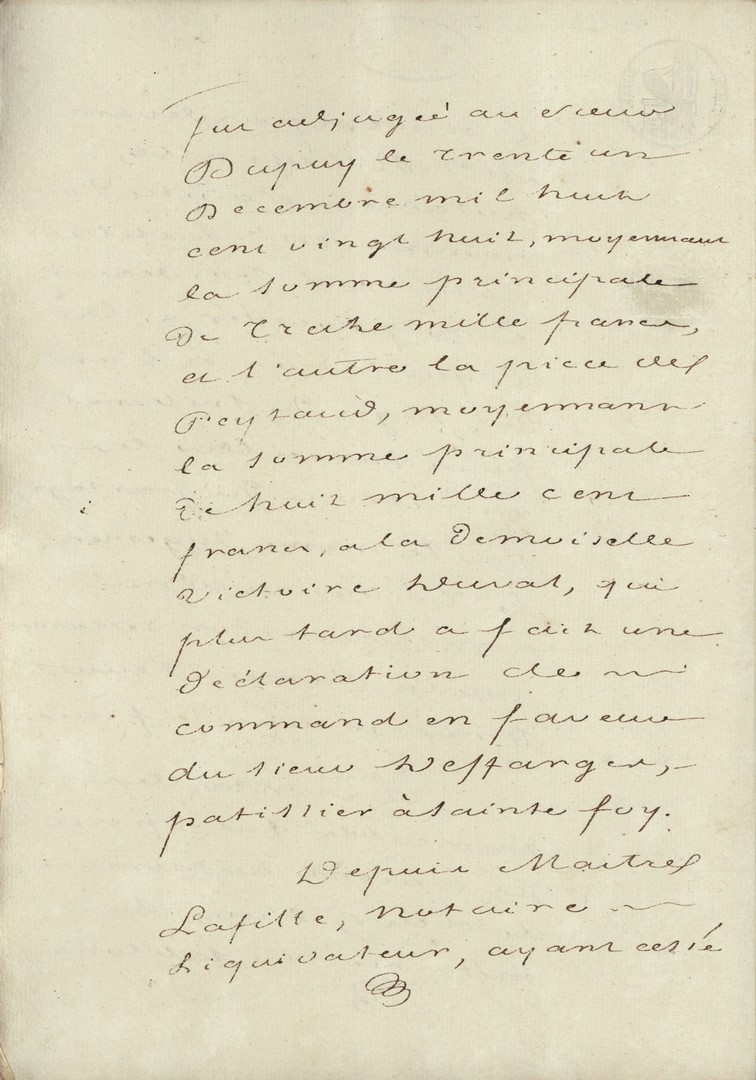 fut adjugéé au sieur
Dupuy le trente un
Decembre mil huit
cent vingt huit, moyennant
la somme principale
De treize mille francs,
et l'autre la piece des
Peytaud, moyennant
la somme principale
De huit mille cent
francs, a la Demoiselle
Victoire Duval, qui
plus tard a fait une
déclaration de
command en faveur
du sieur Deffarges,
patissier à sainte foy.
Depuis Maitre
Lafitte, Notaire
Liquidateur, ayant cessé